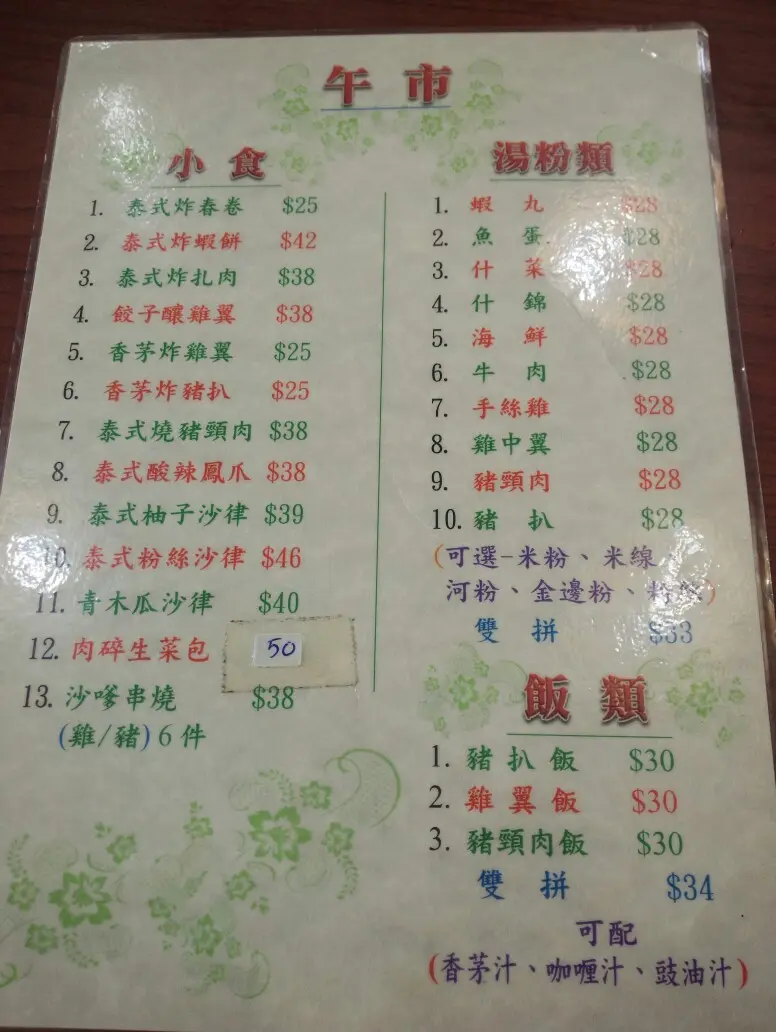 午市
小食
1. 泰式炸春卷 $25
2. 泰式炸蝦餅 $42
3. 泰式炸扎肉 $38
4. 餃子釀雞翼 $38
5. 香茅炸雞翼 $25
6. 香茅炸豬扒 $25
7. 泰式燒豬頸肉 $38
8. 泰式酸辣鳳爪 $38
9. 泰式柚子沙律 $39
10. 泰式粉絲沙律 $46
11. 青木瓜沙律 $40
12. 肉碎生菜包 50
13. 沙嗲串燒 $38
(雞/豬) 6 件
湯粉類
1. 蝦丸 $28
2. 魚蛋 $28
3. 什菜 $28
4. 什錦 $28
5. 海鮮 $28
6. 牛肉 $28
7. 手絲雞 $28
8. 雞中翼 $28
9. 豬頸肉 $28
10. 豬扒 $28
(可選-米粉、米線、
河粉、金邊粉、粉)
雙拼 $33
飯類
1. 豬扒飯 $30
2. 雞翼飯 $30
3. 豬頸肉飯 $30
雙拼 $34
可配
(香茅汁、咖喱汁、豉油汁)